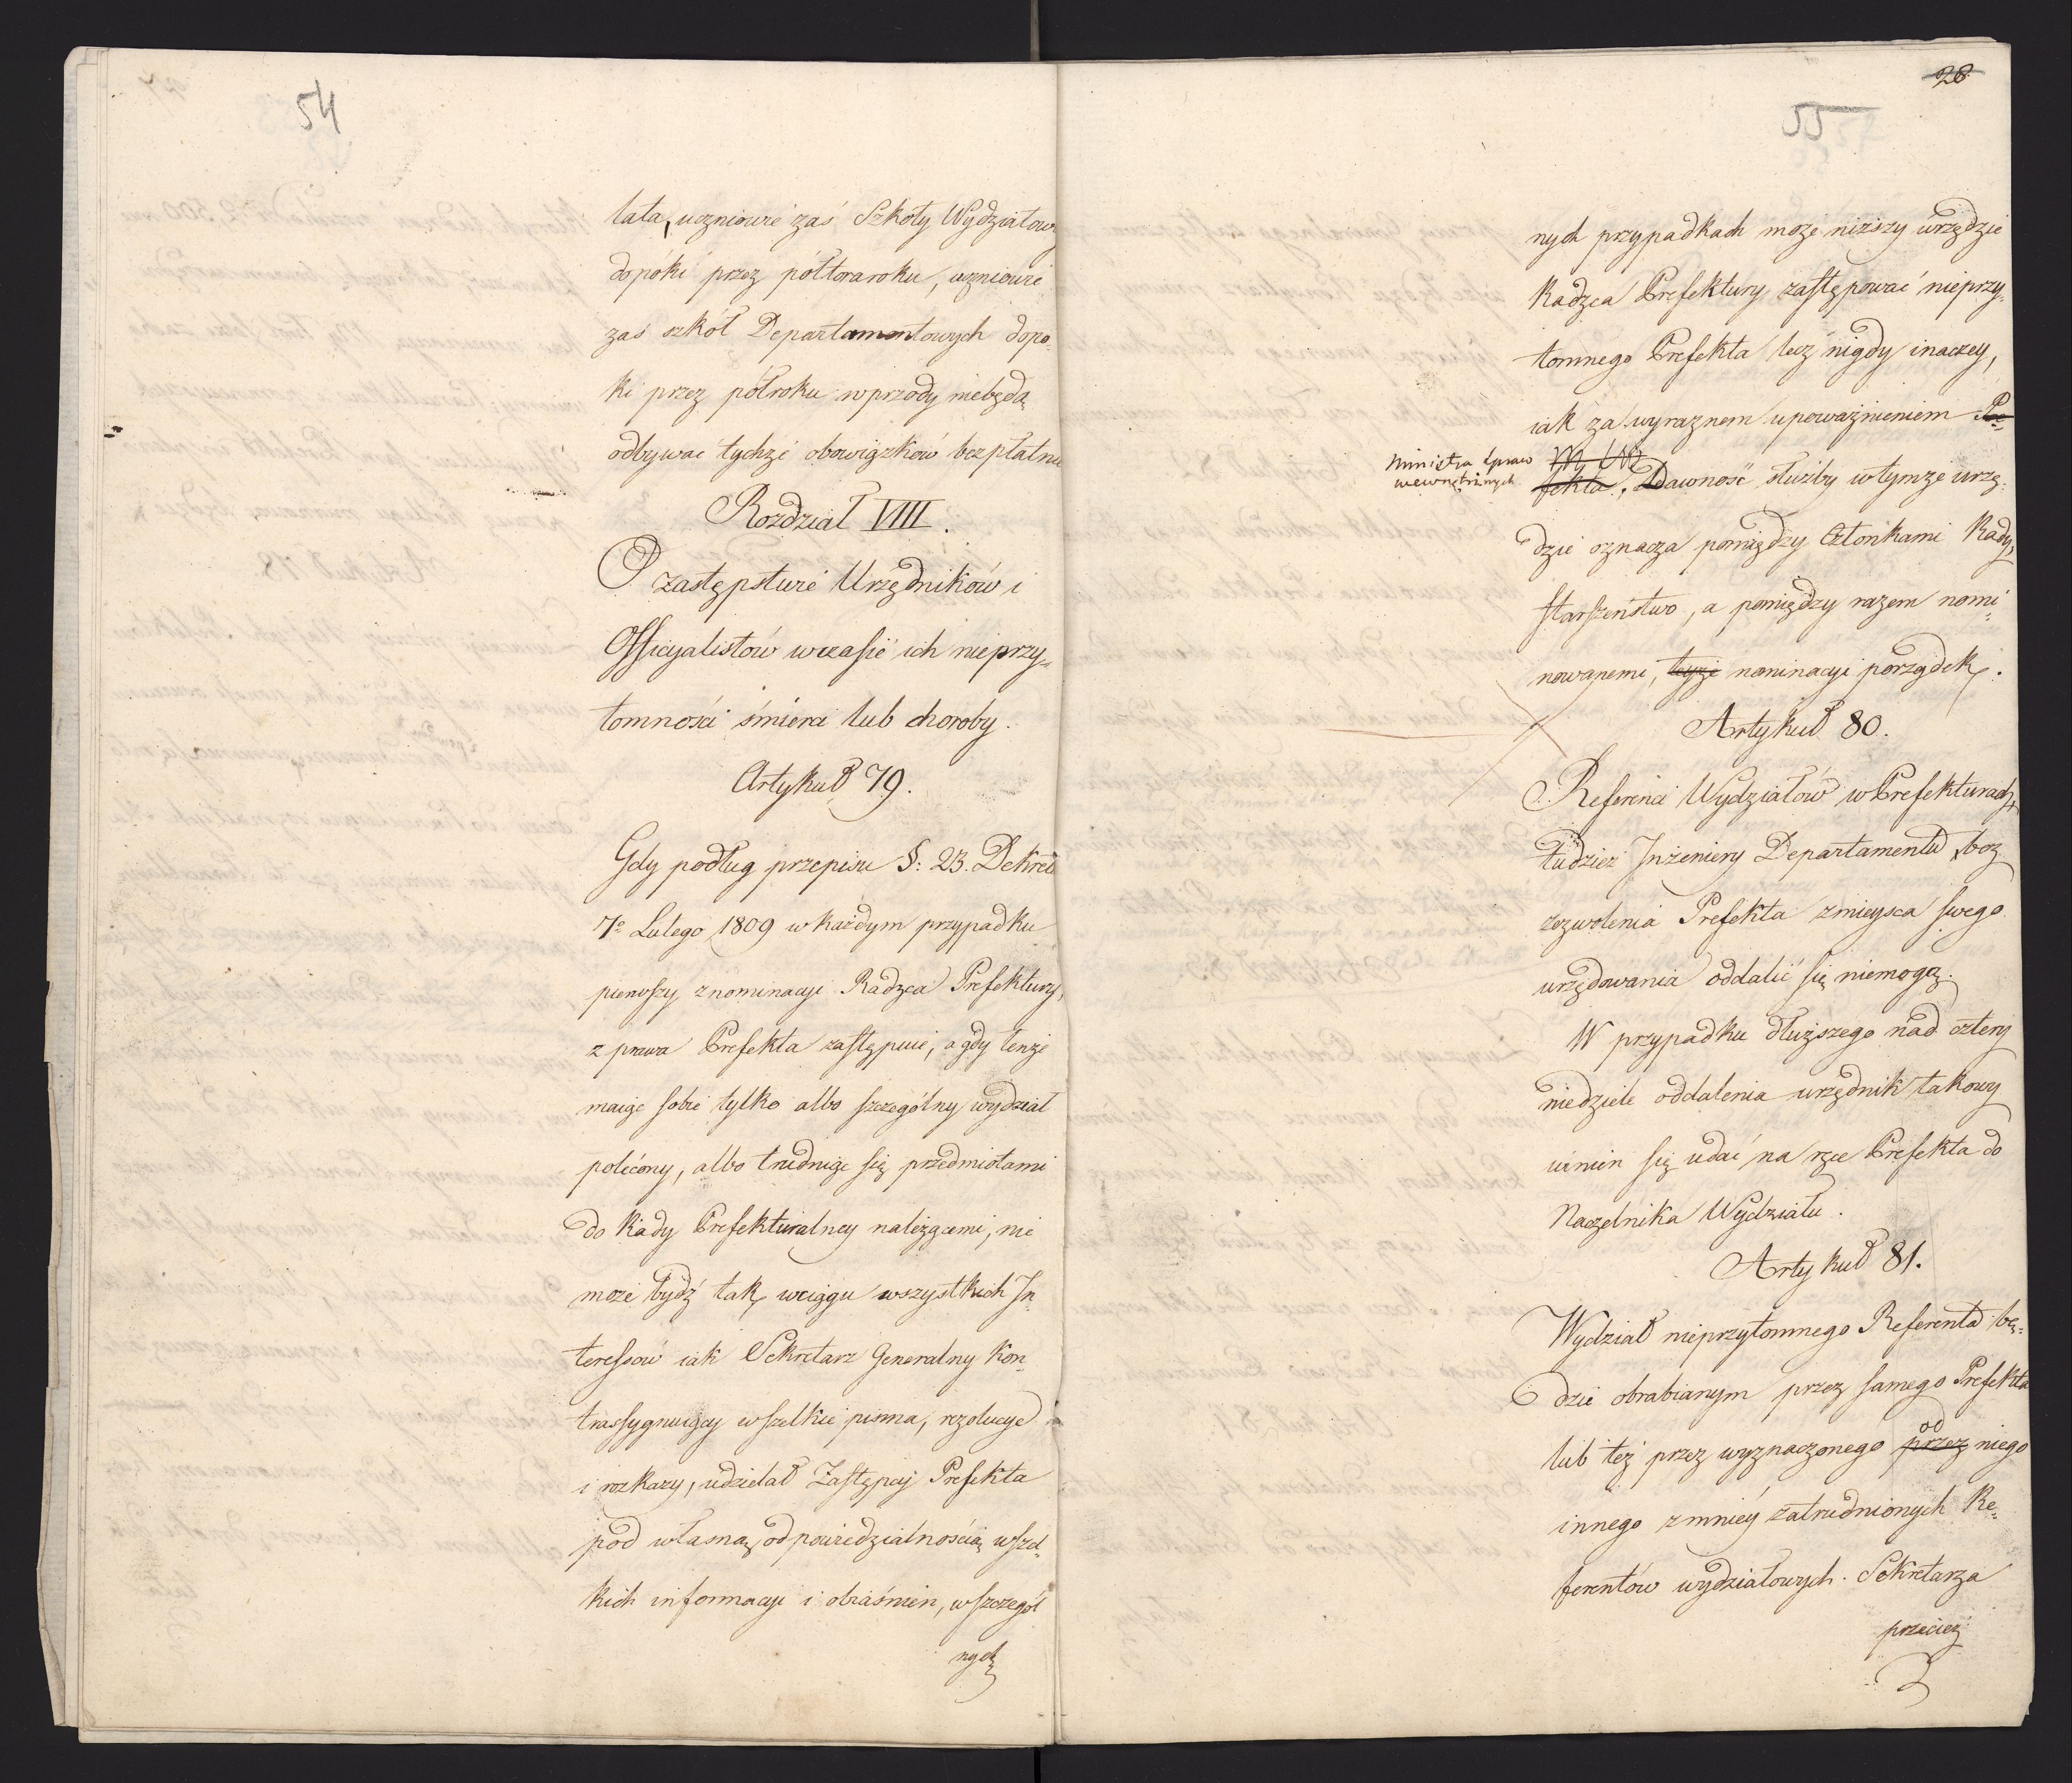 54
lata, uczniowie zaś Szkoły Wydziałow
dopóki przez półtoraroku, uczniowie
zaś szkół Departamentowych dopo-
ki przez półroku wprzódy niebędą
odbywać tychże obowiązków bezpłatnie
Rozdział VIII.
O zastępstwie Urzędników i
Officyalistów wczasie ich nieprzy-
tomności śmierci lub choroby.
Artykuł 79.
Gdy podług przepisu §: 23. Dekretu
7º Lutego 1809 w każdym przypadku
pierwszy z nominacyi Radzca Prefektury,
z prawa Prefekta zastępuie, a gdy tenże
maiąc sobie tylko albo szczególny wydział
polecony, albo trudniąc się przedmiotami
do Rady Prefekturalney należącemi, nie
może bydź tak wciągu wszystkich In
teressów iak Sekretarz Generalny Kon-
trassygnuiący wszelkie pisma, rezolucye
i rozkazy, udzielał Zastępcy Prefekta
pod własną odpowiedzialnością wszel-
kich informacyi i obiaśnień, w szczegól
nych
28
55
nych przypadkach może niższy urzędzie
Radzca Prefektury zastępować nieprzy-
tomnego Prefekta lecz nigdy inaczey,
iak za wyraznem upoważnieniem Pre-
Ministra Spraw
wewnętrznych
fekta. Dawność służby w tymże urzę-
dzie oznacza pomiędzy Członkami Rady,
starszeństwo, a pomiędzy razem nomi-
nowanemi, teyże nominacyi porządek.
Artykuł 80.
Referenci Wydziałów w Prefekturach,
tudzież Inżeniery Departamentu, bez
zezwolenia Prefekta z mieysca swego
urzędowania oddalić się niemogą.
W przypadku dłuższego nad cztery
niedziele oddalenia urzędnik takowy
winien się udać na ręce Prefekta do
Naczelnika Wydziału.
Artykuł 81.
Wydział nieprzytomnego Referenta bę-
dzie obrabianym przez samego Prefekta
od
lub też przez wyznaczonego przez niego
innego z mniéy zatrudnionych Re-
ferentów wydziałowych. Sekretarza
przecież